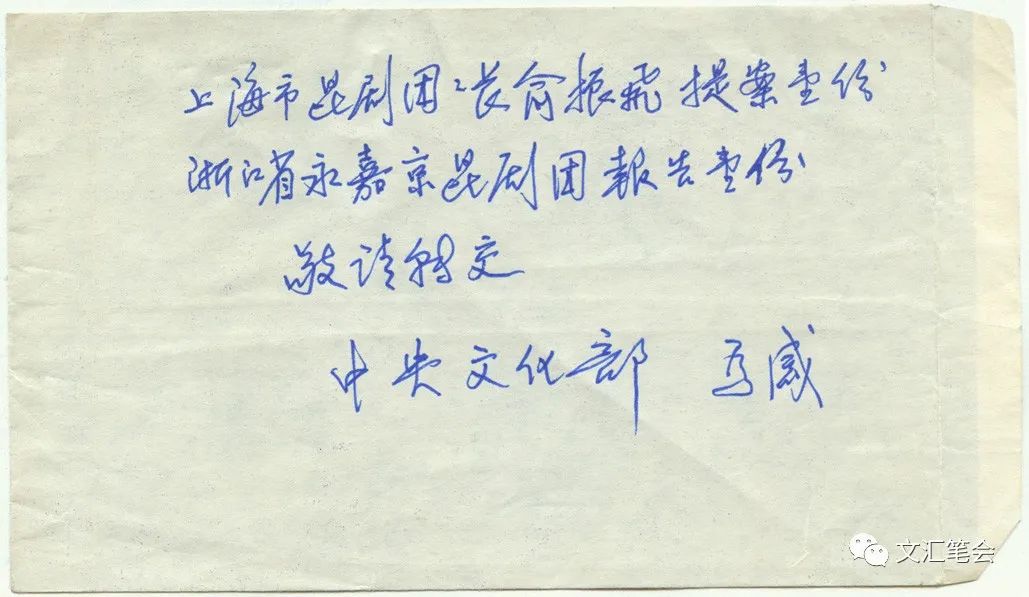 上海市昆剧团々长俞振飛提案壹份
浙江省永嘉京昆剧团報告壹份
敬请转交
中央文化部 为感
文汇笔会